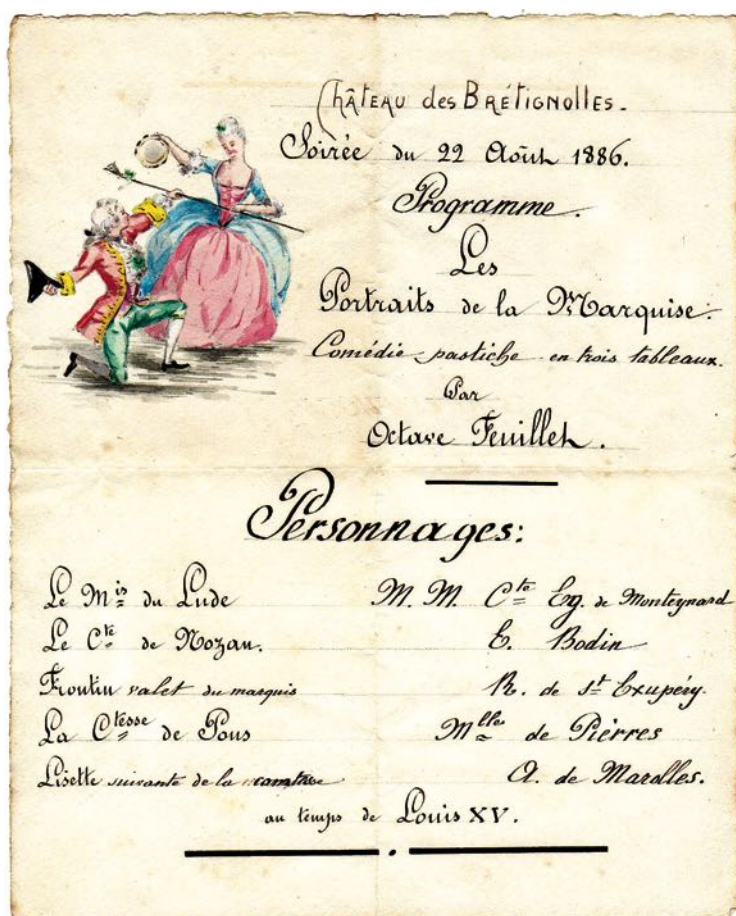 Château des Brétignolles.
Soirée du 22 Août 1886.
Programme.
Les
Portraits de la Marquise.
Comédie-pastiche en trois tableaux.
Par
Octave Feuillet.
Personnages:
Le Mis du Lude M. M. Cte Eg. de Monteynard
Le Cte de Nozan. E. Bodin
Frontin valet du marquis R. de St Exupéry.
La Ctesse de Pons Mlle de Pierres
Lisette suivante de la comtesse A. de Marolles.
au temps de Louis XV.